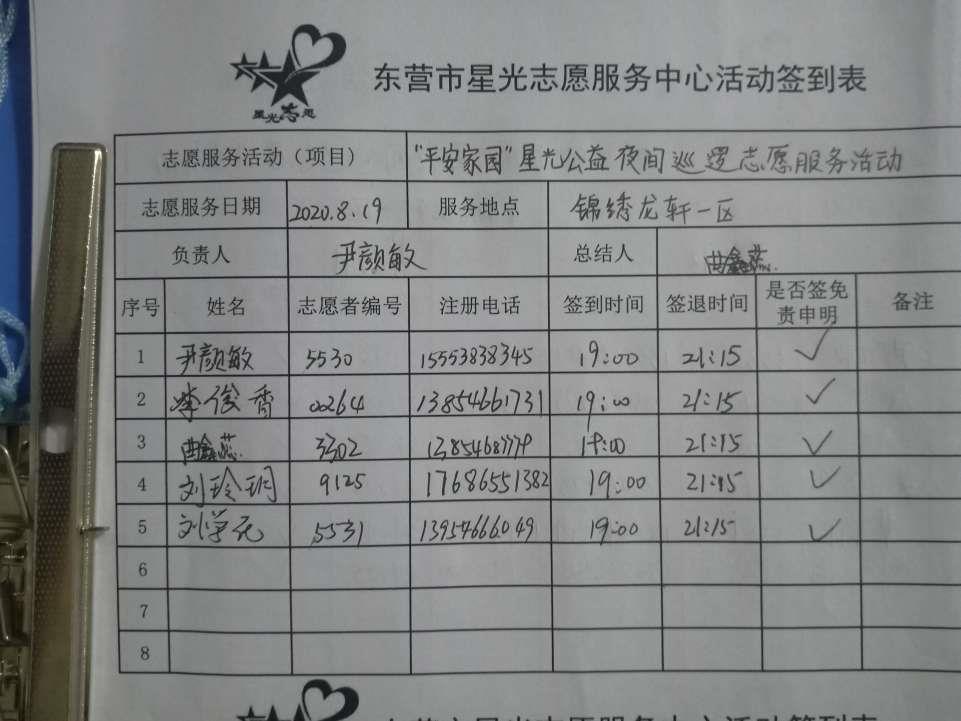 星光志愿
东营市星光志愿服务中心活动签到表
志愿服务活动（项目） "平安家园"星光公益夜间巡逻志愿服务活动
志愿服务日期 2020.8.19 服务地点 锦绣龙轩一区
负责人 尹颜敏 总结人 曲鑫燕
序号 姓名 志愿者编号 注册电话 签到时间 签退时间 是否签免责申明 备注
1 尹颜敏 5530 15553838345 19:00 21:15 ✓
2 李俊香 00264 13854661731 19:00 21:15 ✓
3 曲鑫燕 3302 19:00 21:15 ✓
4 刘玲玥 9125 17686551382 19:00 21:15 ✓
5 刘学花 5531 13954666049 19:00 21:15 ✓
6
7
8
东营市星光志愿服务中心活动签到表